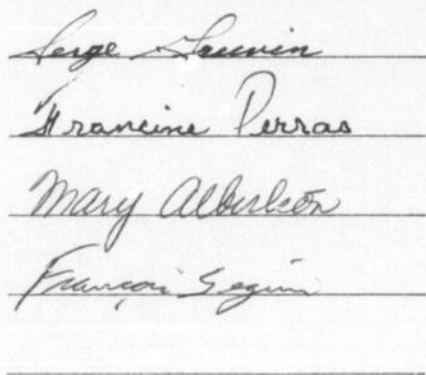 Serge Gauvin
Francine Perras
Mary Albertson
François Seguin